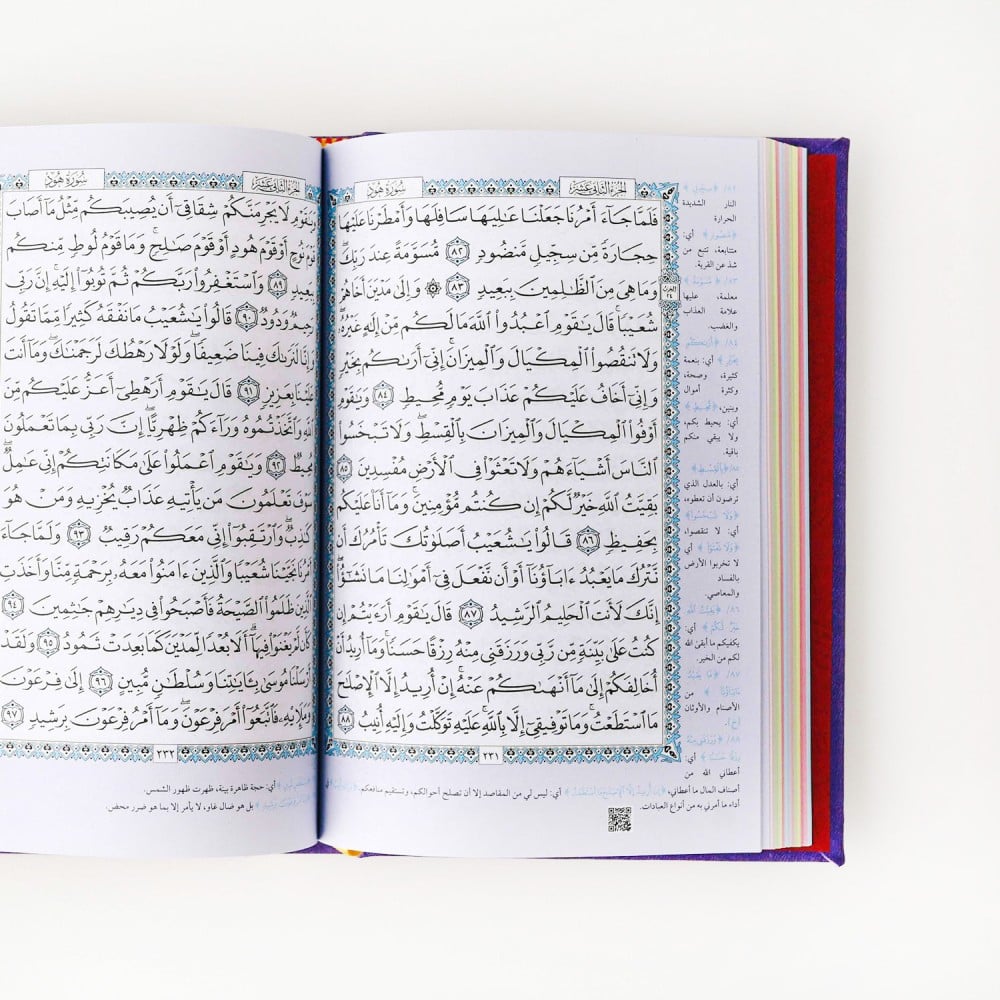 سُورَةُ هُودٍ
الجُزءُ الثَّانِي عَشَرَ
فَلَمَّا جَآءَ أَمْرُنَا جَعَلْنَا عَٰلِيَهَا سَافِلَهَا وَأَمْطَرْنَا عَلَيْهَا
حِجَارَةً مِّن سِجِّيلٍ مَّنضُودٍ ٨٢ مُّسَوَّمَةً عِندَ رَبِّكَۖ
وَمَا هِىَ مِنَ ٱلظَّٰلِمِينَ بِبَعِيدٍ ٨٣ ۞ وَإِلَىٰ مَدْيَنَ أَخَاهُمْ
شُعَيْبًاۚ قَالَ يَٰقَوْمِ ٱعْبُدُوا۟ ٱللَّهَ مَا لَكُم مِّنْ إِلَٰهٍ غَيْرُهُۥۖ
وَلَا تَنقُصُوا۟ ٱلْمِكْيَالَ وَٱلْمِيزَانَۚ إِنِّىٓ أَرَىٰكُم بِخَيْرٍ
وَإِنِّىٓ أَخَافُ عَلَيْكُمْ عَذَابَ يَوْمٍ مُّحِيطٍ ٨٤ وَيَٰقَوْمِ
أَوْفُوا۟ ٱلْمِكْيَالَ وَٱلْمِيزَانَ بِٱلْقِسْطِۖ وَلَا تَبْخَسُوا۟
ٱلنَّاسَ أَشْيَآءَهُمْ وَلَا تَعْثَوْا۟ فِى ٱلْأَرْضِ مُفْسِدِينَ ٨٥
بَقِيَّتُ ٱللَّهِ خَيْرٌ لَّكُمْ إِن كُنتُم مُّؤْمِنِينَۚ وَمَآ أَنَا۠ عَلَيْكُم
بِحَفِيظٍ ٨٦ قَالُوا۟ يَٰشُعَيْبُ أَصَلَوٰتُكَ تَأْمُرُكَ أَن
نَّتْرُكَ مَا يَعْبُدُ ءَابَآؤُنَآ أَوْ أَن نَّفْعَلَ فِىٓ أَمْوَٰلِنَا مَا نَشَٰٓؤُا۟ۖ
إِنَّكَ لَأَنتَ ٱلْحَلِيمُ ٱلرَّشِيدُ ٨٧ قَالَ يَٰقَوْمِ أَرَءَيْتُمْ إِن
كُنتُ عَلَىٰ بَيِّنَةٍ مِّن رَّبِّى وَرَزَقَنِى مِنْهُ رِزْقًا حَسَنًاۚ وَمَآ أُرِيدُ أَنْ
أُخَالِفَكُمْ إِلَىٰ مَآ أَنْهَىٰكُمْ عَنْهُۚ إِنْ أُرِيدُ إِلَّا ٱلْإِصْلَٰحَ
مَا ٱسْتَطَعْتُۚ وَمَا تَوْفِيقِىٓ إِلَّا بِٱللَّهِۚ عَلَيْهِ تَوَكَّلْتُ وَإِلَيْهِ أُنِيبُ ٨٨
٢٣١
الحزب
٢٤
٨٢/ ﴿سِجِّيلٍ﴾
النار الشديدة
الحرارة
﴿مَّنضُودٍ﴾ أي:
متتابعة، تتبع من
شذ عن القرية.
٨٣/ ﴿مُّسَوَّمَةً﴾
معلمة، عليها
علامة العذاب
والغضب.
٨٤/ ﴿أَرَىٰكُم
بِخَيْرٍ﴾ أي: بنعمة
كثيرة، وصحة،
وكثرة أموال
وبنين، ﴿مُّحِيطٍ﴾
أي: يحيط بكم،
ولا يبقي منكم
باقية.
٨٥/ ﴿بِٱلْقِسْطِ﴾
أي: بالعدل الذي
ترضون أن تعطوه،
﴿وَلَا تَبْخَسُوا۟﴾
أي: لا تنقصوا،
﴿وَلَا تَعْثَوْا۟﴾ أي
لا تخربوا الأرض
بالفساد
والمعاصي.
٨٦/ ﴿بَقِيَّتُ ٱللَّهِ
خَيْرٌ لَّكُمْ﴾ أي:
يكفيكم ما أبقى الله
لكم من الخير.
٨٧/ ﴿مَا يَعْبُدُ
ءَابَآؤُنَآ﴾ من
الأصنام والأوثان
٨٨/ ﴿وَرَزَقَنِى مِنْهُ
رِزْقًا حَسَنًا﴾ أي:
أعطاني الله من
أصناف المال ما أعطاني، ﴿إِنْ أُرِيدُ إِلَّا ٱلْإِصْلَٰحَ مَا ٱسْتَطَعْتُ﴾ أي: ليس لي من المقاصد إلا أن تصلح أحوالكم، وتستقيم منافعكم
أداء ما أمرني به من أنواع العبادات.
الجُزءُ الثَّانِي عَشَرَ
سُورَةُ هُودٍ
وَيَٰقَوْمِ لَا يَجْرِمَنَّكُمْ شِقَاقِىٓ أَن يُصِيبَكُم مِّثْلُ مَآ أَصَابَ
قَوْمَ نُوحٍ أَوْ قَوْمَ هُودٍ أَوْ قَوْمَ صَٰلِحٍۚ وَمَا قَوْمُ لُوطٍ مِّنكُم
بِبَعِيدٍ ٨٩ وَٱسْتَغْفِرُوا۟ رَبَّكُمْ ثُمَّ تُوبُوٓا۟ إِلَيْهِۚ إِنَّ رَبِّى
رَحِيمٌ وَدُودٌ ٩٠ قَالُوا۟ يَٰشُعَيْبُ مَا نَفْقَهُ كَثِيرًا مِّمَّا تَقُولُ
وَإِنَّا لَنَرَىٰكَ فِينَا ضَعِيفًاۖ وَلَوْلَا رَهْطُكَ لَرَجَمْنَٰكَۖ وَمَآ أَنتَ
عَلَيْنَا بِعَزِيزٍ ٩١ قَالَ يَٰقَوْمِ أَرَهْطِىٓ أَعَزُّ عَلَيْكُم مِّنَ
ٱللَّهِ وَٱتَّخَذْتُمُوهُ وَرَآءَكُمْ ظِهْرِيًّاۖ إِنَّ رَبِّى بِمَا تَعْمَلُونَ
مُحِيطٌ ٩٢ وَيَٰقَوْمِ ٱعْمَلُوا۟ عَلَىٰ مَكَانَتِكُمْ إِنِّى عَٰمِلٌۖ
سَوْفَ تَعْلَمُونَ مَن يَأْتِيهِ عَذَابٌ يُخْزِيهِ وَمَنْ هُوَ
كَٰذِبٌۖ وَٱرْتَقِبُوٓا۟ إِنِّى مَعَكُمْ رَقِيبٌ ٩٣ وَلَمَّا جَآءَ
أَمْرُنَا نَجَّيْنَا شُعَيْبًا وَٱلَّذِينَ ءَامَنُوا۟ مَعَهُۥ بِرَحْمَةٍ مِّنَّا وَأَخَذَتِ
ٱلَّذِينَ ظَلَمُوا۟ ٱلصَّيْحَةُ فَأَصْبَحُوا۟ فِى دِيَٰرِهِمْ جَٰثِمِينَ ٩٤
كَأَن لَّمْ يَغْنَوْا۟ فِيهَآۗ أَلَا بُعْدًا لِّمَدْيَنَ كَمَا بَعِدَتْ ثَمُودُ ٩٥ وَلَقَدْ
أَرْسَلْنَا مُوسَىٰ بِـَٔايَٰتِنَا وَسُلْطَٰنٍ مُّبِينٍ ٩٦ إِلَىٰ فِرْعَوْنَ
وَمَلَإِي۟هِۦ فَٱتَّبَعُوٓا۟ أَمْرَ فِرْعَوْنَۖ وَمَآ أَمْرُ فِرْعَوْنَ بِرَشِيدٍ ٩٧
٢٣٢
أي: حجة ظاهرة بينة، ظهرت ظهور الشمس.
بل هو ضال غاو، لا يأمر إلا بما هو ضرر محض.